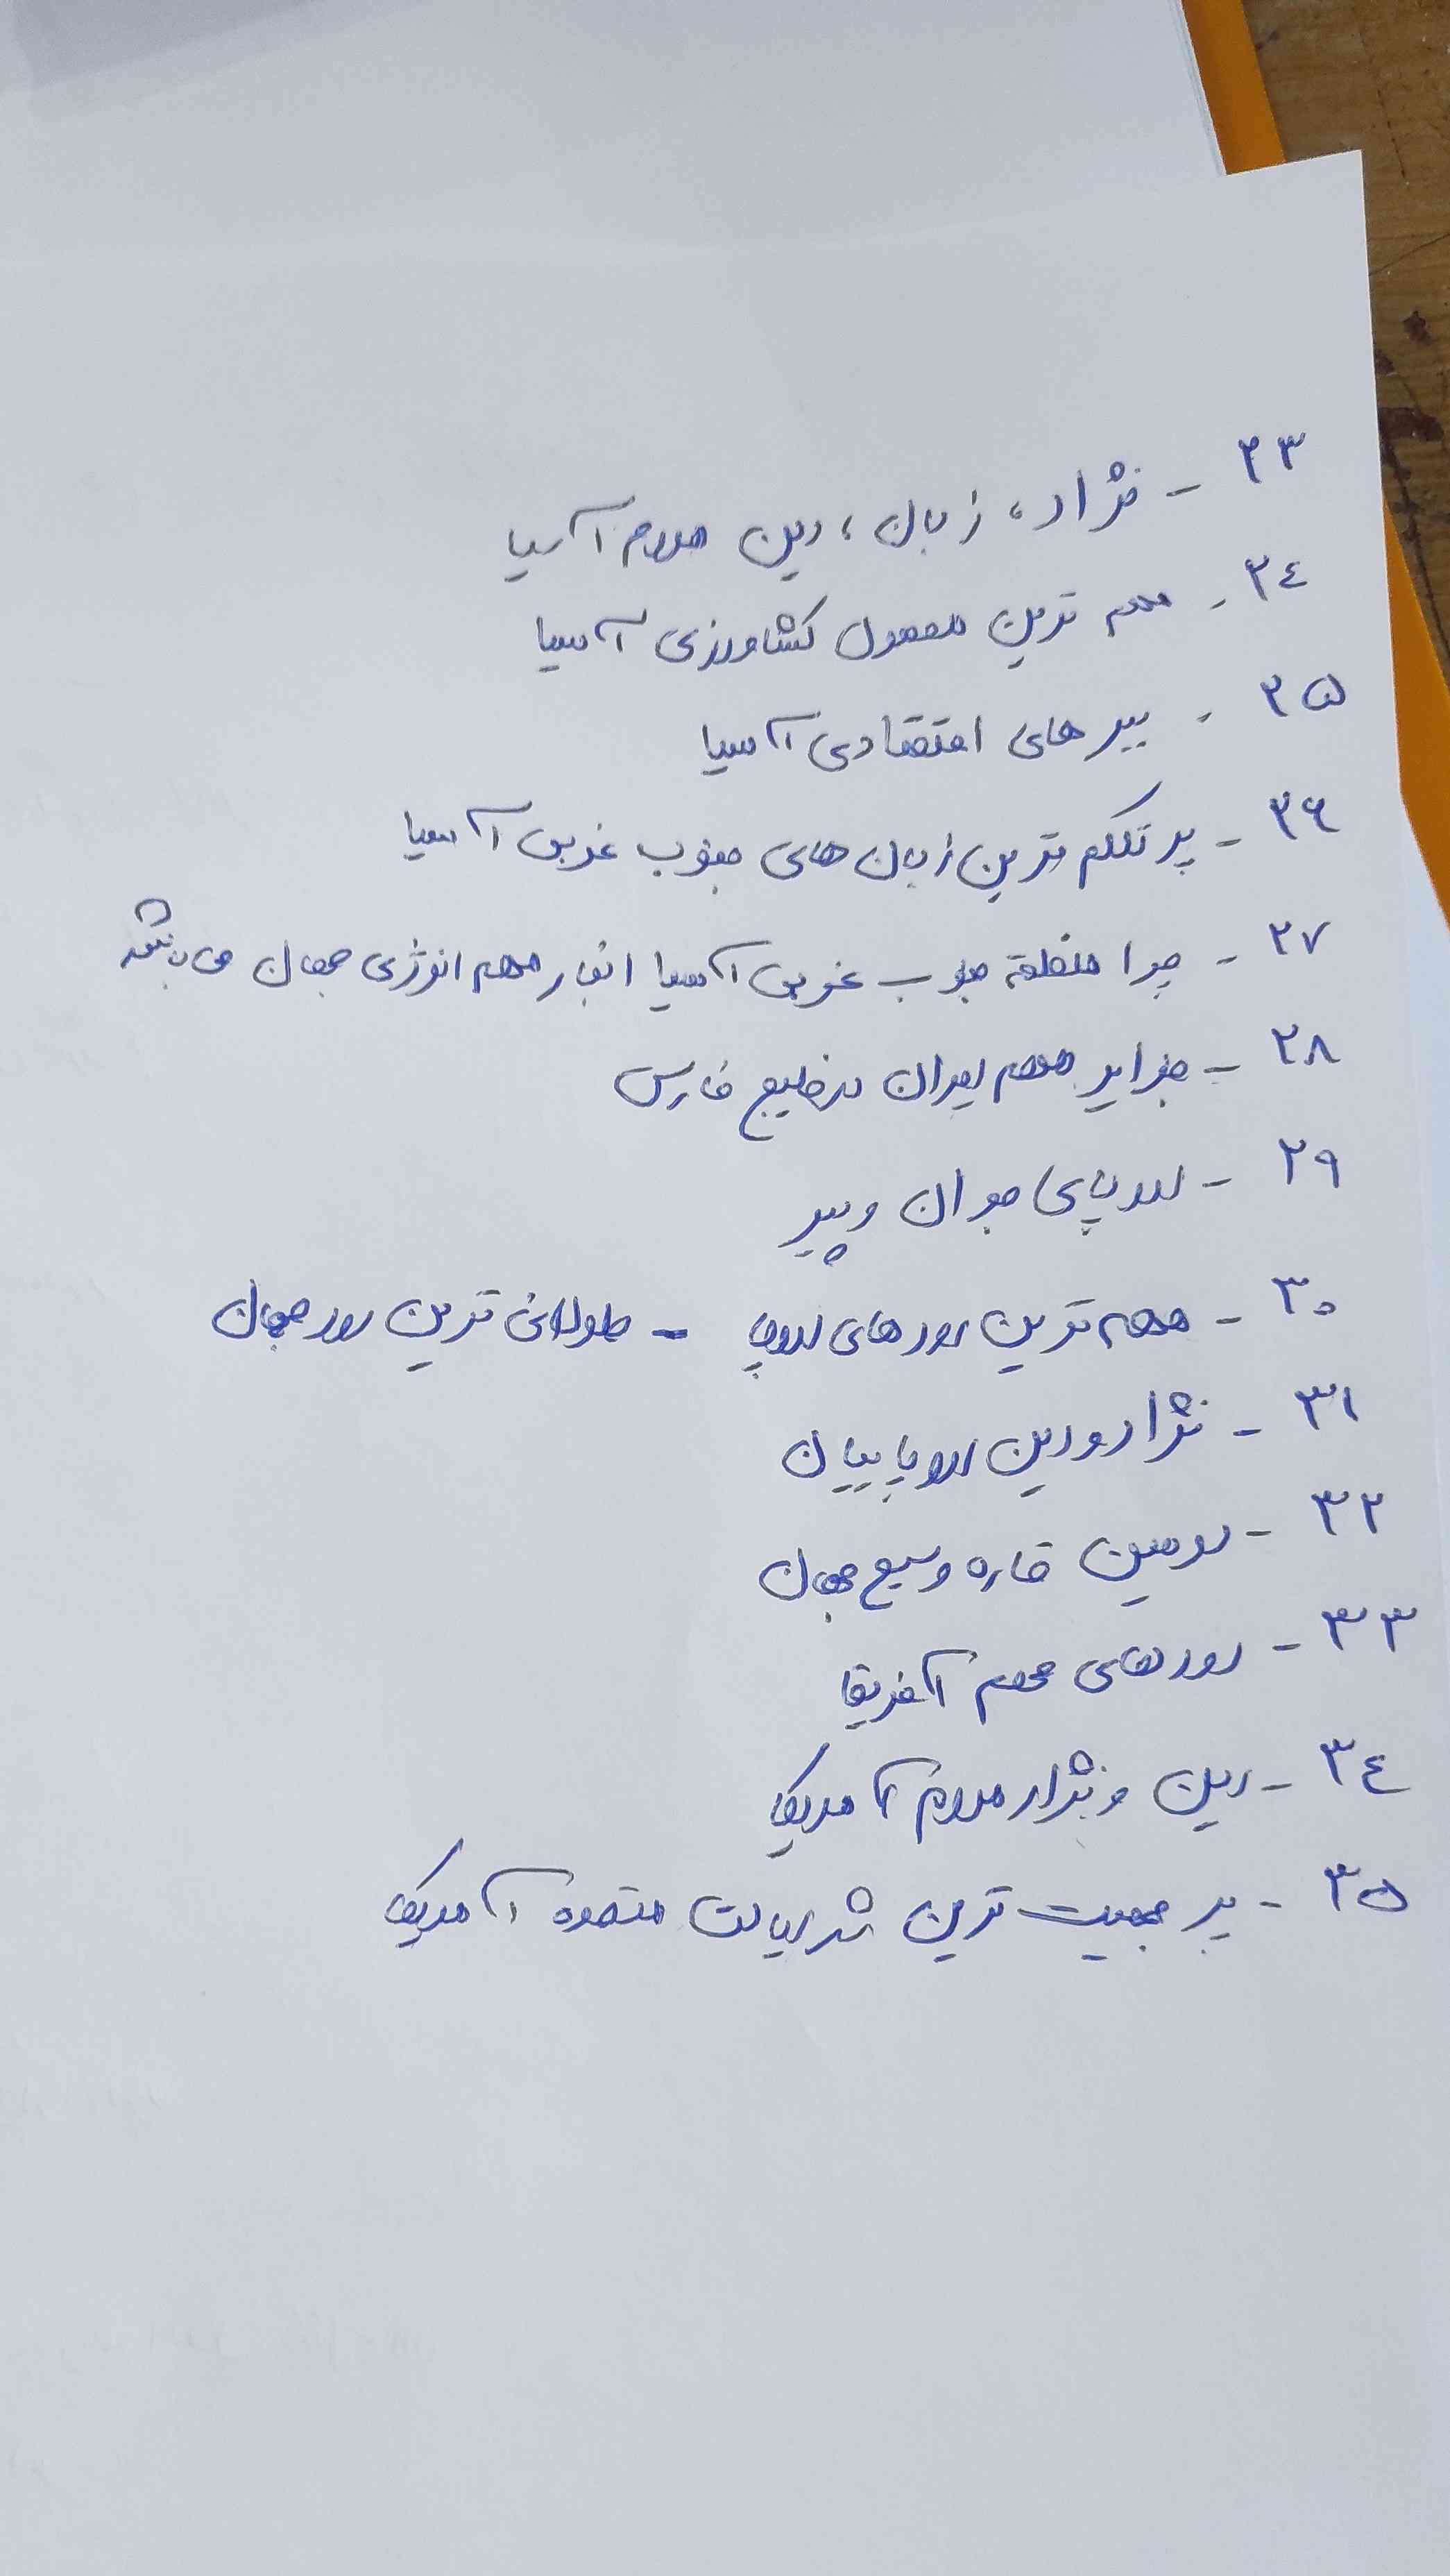 ۲۳ - نژاد، زبان، دین مردم آسیا
۲۴ - مهم ترین محصول کشاورزی آسیا
۲۵ - ببر های اقتصادی آسیا
۲۶ - پر تکلم ترین زبان های جنوب غربی آسیا
۲۷ - چرا منطقه جنوب غربی آسیا انبار مهم انرژی جهان می باشد
۲۸ - جزایر مهم ایران در خلیج فارس
۲۹ - اروپای جوان و پیر
۳۰ - مهم ترین رود های اروپا - طولانی ترین رود جهان
۳۱ - نژاد و دین اروپاییان
۳۲ - دومین قاره وسیع جهان
۳۳ - رودهای مهم آفریقا
۳۴ - دین و نژاد مردم آمریکا
۳۵ - پر جمعیت ترین شهر ایالات متحده آمریکا